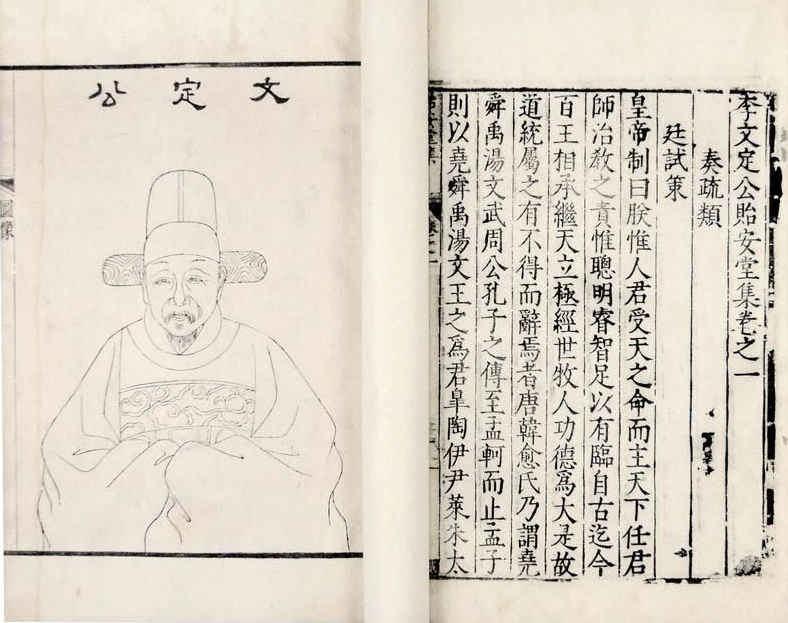 李文定公貽安堂集卷之一
奏疏類
廷試策
皇帝制曰朕惟人君受天之命而主天下任君
師治教之責惟聰明睿智足以有臨自古迄今
百王相承繼天立極經世牧人功德爲大是故
道統屬之有不得而辭焉者唐韓愈氏乃謂堯
舜禹湯文武周公孔子之傳至孟軻而止孟子
則以堯舜禹湯文王之爲君臯陶伊尹萊朱太
文定公
圖像